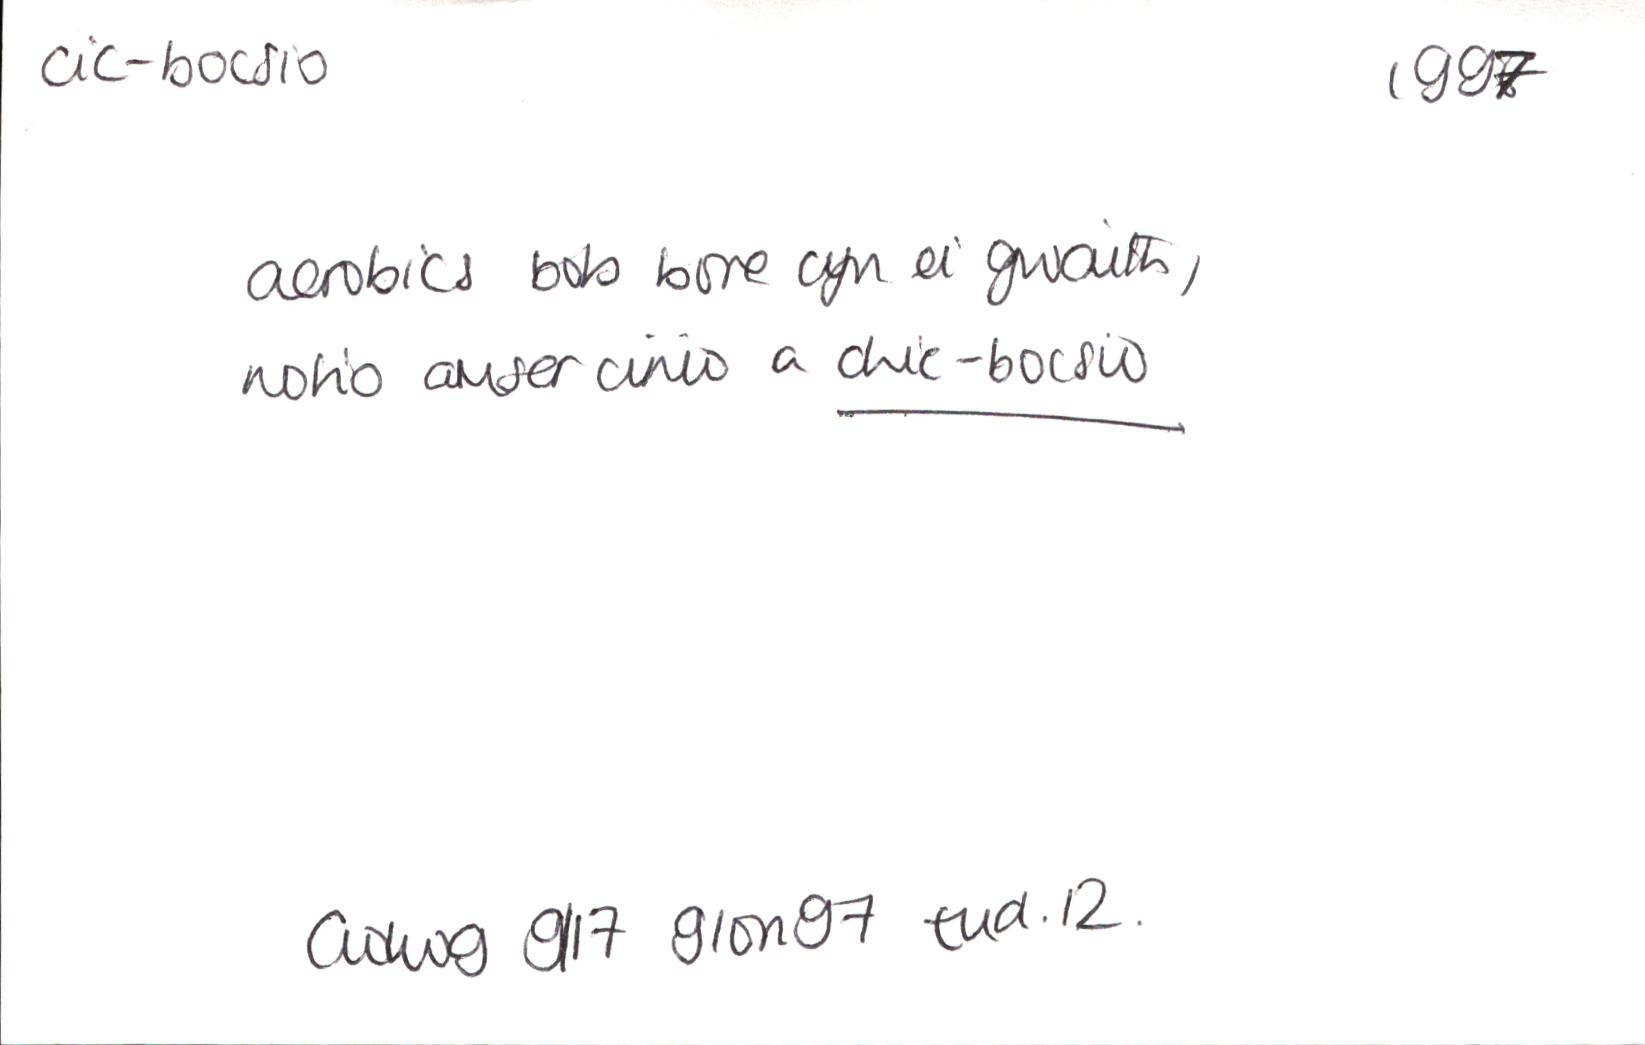 cic-bocsio 1997
aerobics bob bore cyn ei gwaith,
nofio amser cinio a chic-bocsio
9/17 97 tud. 12.